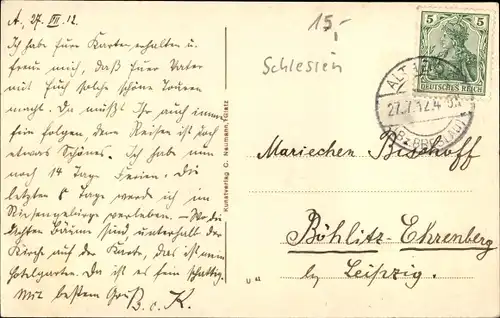 A., 27. VII. 12.
Ich habe Eure Karten erhalten u.
freue mich, daß Euer Vater
mit Euch solche schöne Touren
macht. Da müßt Ihr auch immer
fein folgen, denn Reisen ist doch
etwas Schönes. Ich habe nun
noch 14 Tage Ferien. Die
letzten 8 Tage werde ich im
Riesengebirge verleben. – Wo die
dichten Bäume sind unterhalb der
Kirche auf der Karte, das ist mein
Hotelgarten. Da ist es fein schattig.
Mit bestem Gruß
K.
Kunstverlag C. Neumann,
15,-
Schlesien
5 5
DEUTSCHES REICH
27.7.12.4
Mariechen Bischoff
Böhlitz-Ehrenberg
by Leipzig.